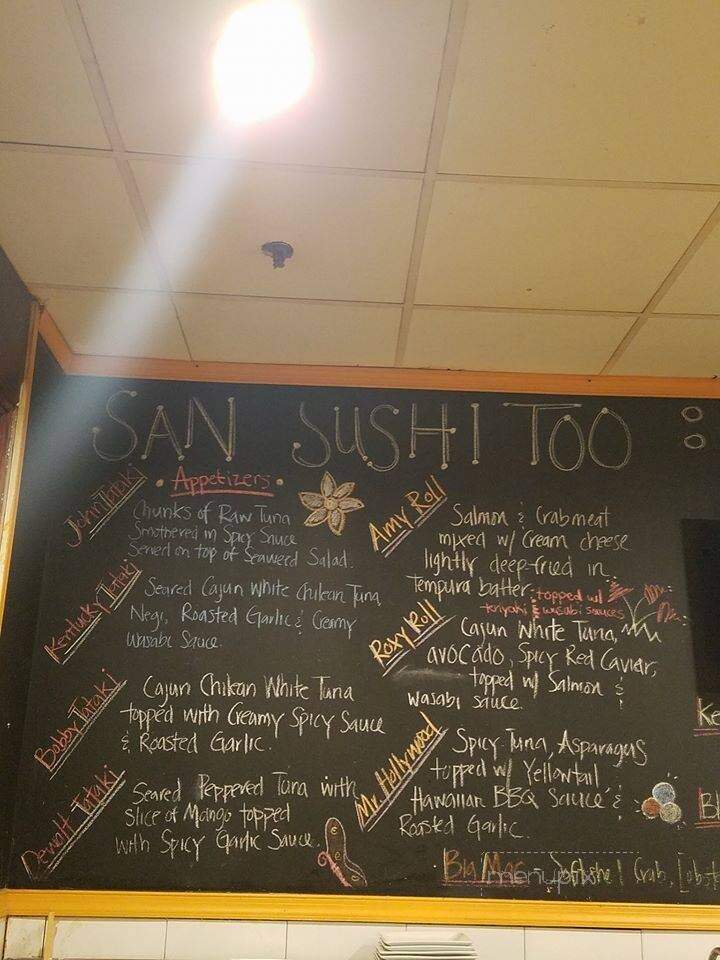 SAN SUSHI TOO :
Appetizers
John Tataki
Chunks of Raw Tuna
Smothered in Spicy Sauce
Served on top of Seaweed Salad.
Kentucky Tataki
Seared Cajun White Chilean Tuna
Negi, Roasted Garlic & Creamy
Wasabi Sauce.
Bobby Tataki
Cajun Chikan White Tuna
topped with Creamy Spicy Sauce
& Roasted Garlic.
Dewott Tataki
Seared Peppered Tuna with
slice of Mango topped
with Spicy Garlic Sauce.
Amy Roll
Salmon & Crabmeat
mixed w/ Cream cheese
lightly deep-fried in
Tempura batter topped w/
teriyaki & wasabi sauces
Roxy Roll
Cajun White Tuna,
avocado, Spicy Red Caviar,
topped w/ Salmon &
wasabi sauce.
Mr. Hollywood
Spicy Tuna, Asparagus
topped w/ Yellowtail
Hawaiian BBQ Sauce &
Roasted Garlic.
Big Mac - Softshell Crab, Lobste
Ke
Bl
menupix